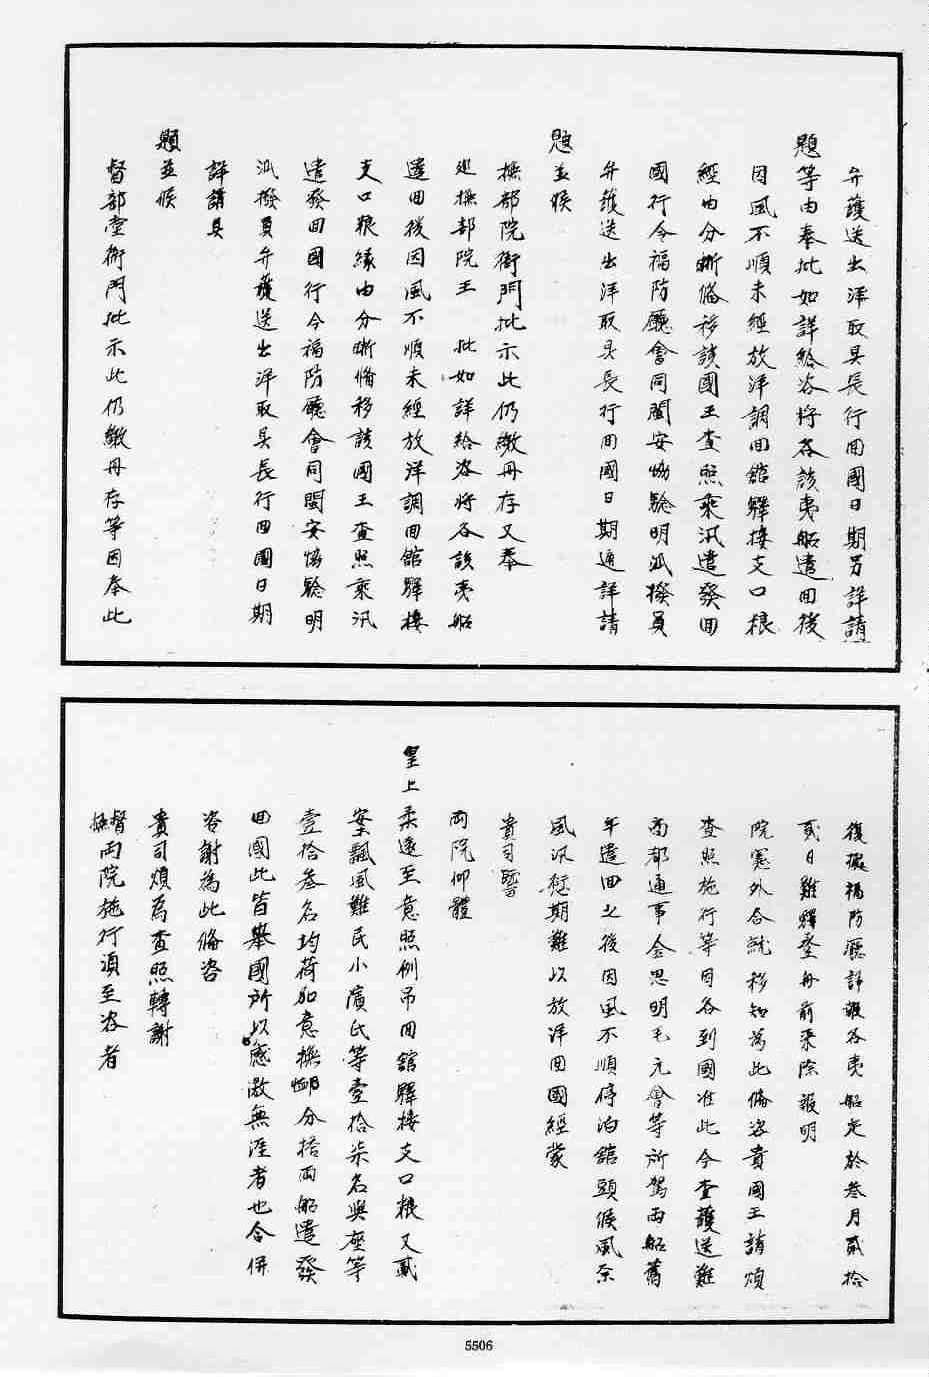 弁護送出洋取具長行回國日期另詳請
題等由奉批如詳給咨將各該夷船遣回後
因風不順未經放洋調回館驛接支口粮
經由分晰俻移該國王查照乘汛遣發回
國行令福防廳會同閩安協驗明泒撥員
弁護送出洋取具長行回國日期通詳請
題並候
撫部院衙門批示此仍繳冊存又奉
廵撫部院王 批如詳給咨將各該夷船
遣回後因風不順未經放洋調回館驛接
支口粮緣由分晰俻移該國王查照乘汛
遣發回國行令福防廳會同閩安協驗明
泒撥員弁護送出洋取具長行回國日期
詳請具
題並候
督部堂衙門批示此仍繳冊存等因奉此
復據福防廳詳報各夷船定於叁月貳拾
貳日離驛登舟前来除報明
院憲外合就移知為此俻咨貴國王請煩
查照施行等因各到國准此今查護送難
商都通事金思明毛元會等所駕両船舊
年遣回之後因風不順停泊舘頭候風奈
風汛愆期難以放洋回國經蒙
貴司暨
両院仰體
皇上柔遠至意照例吊回舘驛接支口粮又貳
案飄風難民小濱氏等壹拾柒名與座等
壹拾叁名均荷加意撫卹分搭両船遣發
回國此皆舉國所以感激無涯者也合併
咨謝為此俻咨
貴司煩為查照轉謝
督撫両院施行須至咨者
5506